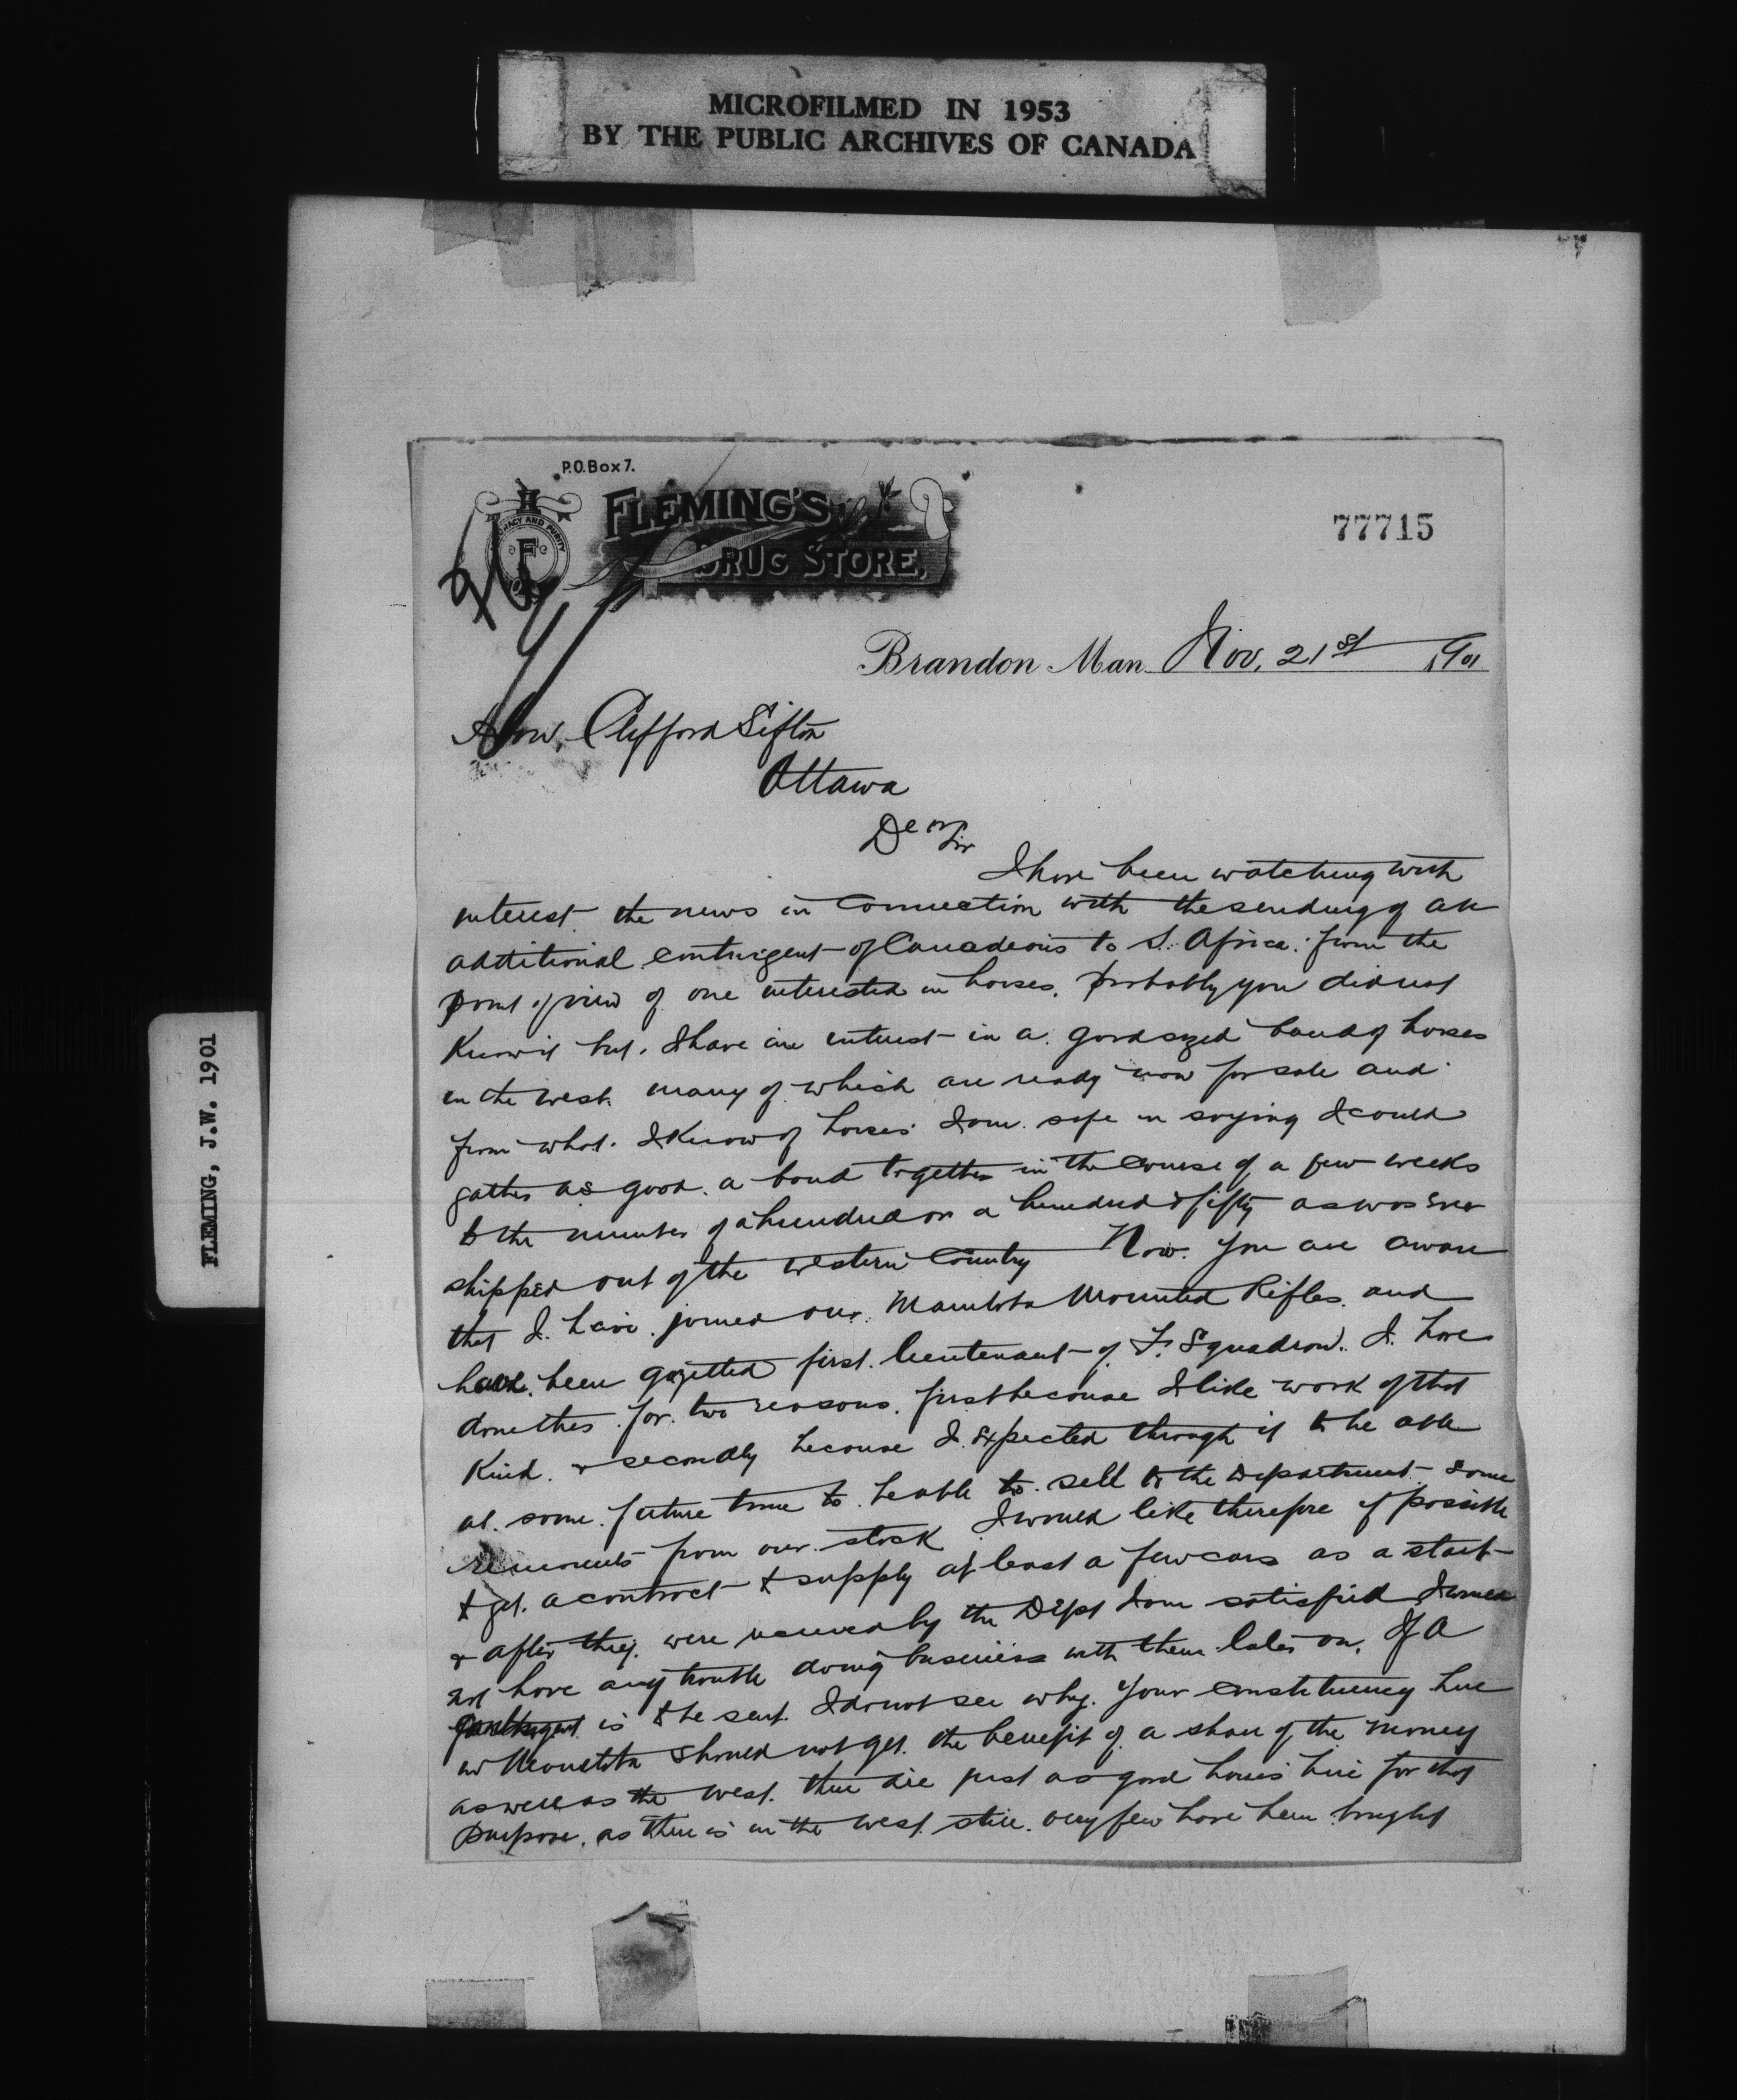 MICROFILMED IN 1953
BY THE PUBLIC ARCHIVES OF CANADA
FLEMING, J.W. 1901
P.O. Box 7.
FLEMING'S
DRUG STORE,
ACCURACY AND PURITY
F
77715
Brandon Man. Nov. 21st 1901
Hon. Clifford Sifton
Ottawa
Dear Sir
I have been watching with
interest the news in connection with the sending of an
additional contingent of Canadians to S. Africa from the
point of view of one interested in horses. Probably you did not
know it but I have an interest in a good sized band of horses
in the west many of which are ready now for sale and
from what I know of horses I am safe in saying I could
gather as good a band together in the course of a few weeks
to the number of a hundred or a hundred & fifty as was ever
shipped out of the western country Now you are aware
that I have joined our Manitoba Mounted Rifles and
have been gazetted first lieutenant of F. Squadron. I have
done this for two reasons. first because I like work of that
kind & secondly because I expected through it to be able
at some future time to be able to sell to the Department some
remounts from our stock I would like therefore if possible
to get a contract to supply at least a few cars as a start
& after they were received by the Dept I am satisfied I would
not have any trouble doing business with them later on. If a
contingent is to be sent I do not see why your constituency here
in Manitoba should not get the benefit of a share of the money
as well as the west. there are just as good horses here for that
purpose as there is in the west still very few have been bought